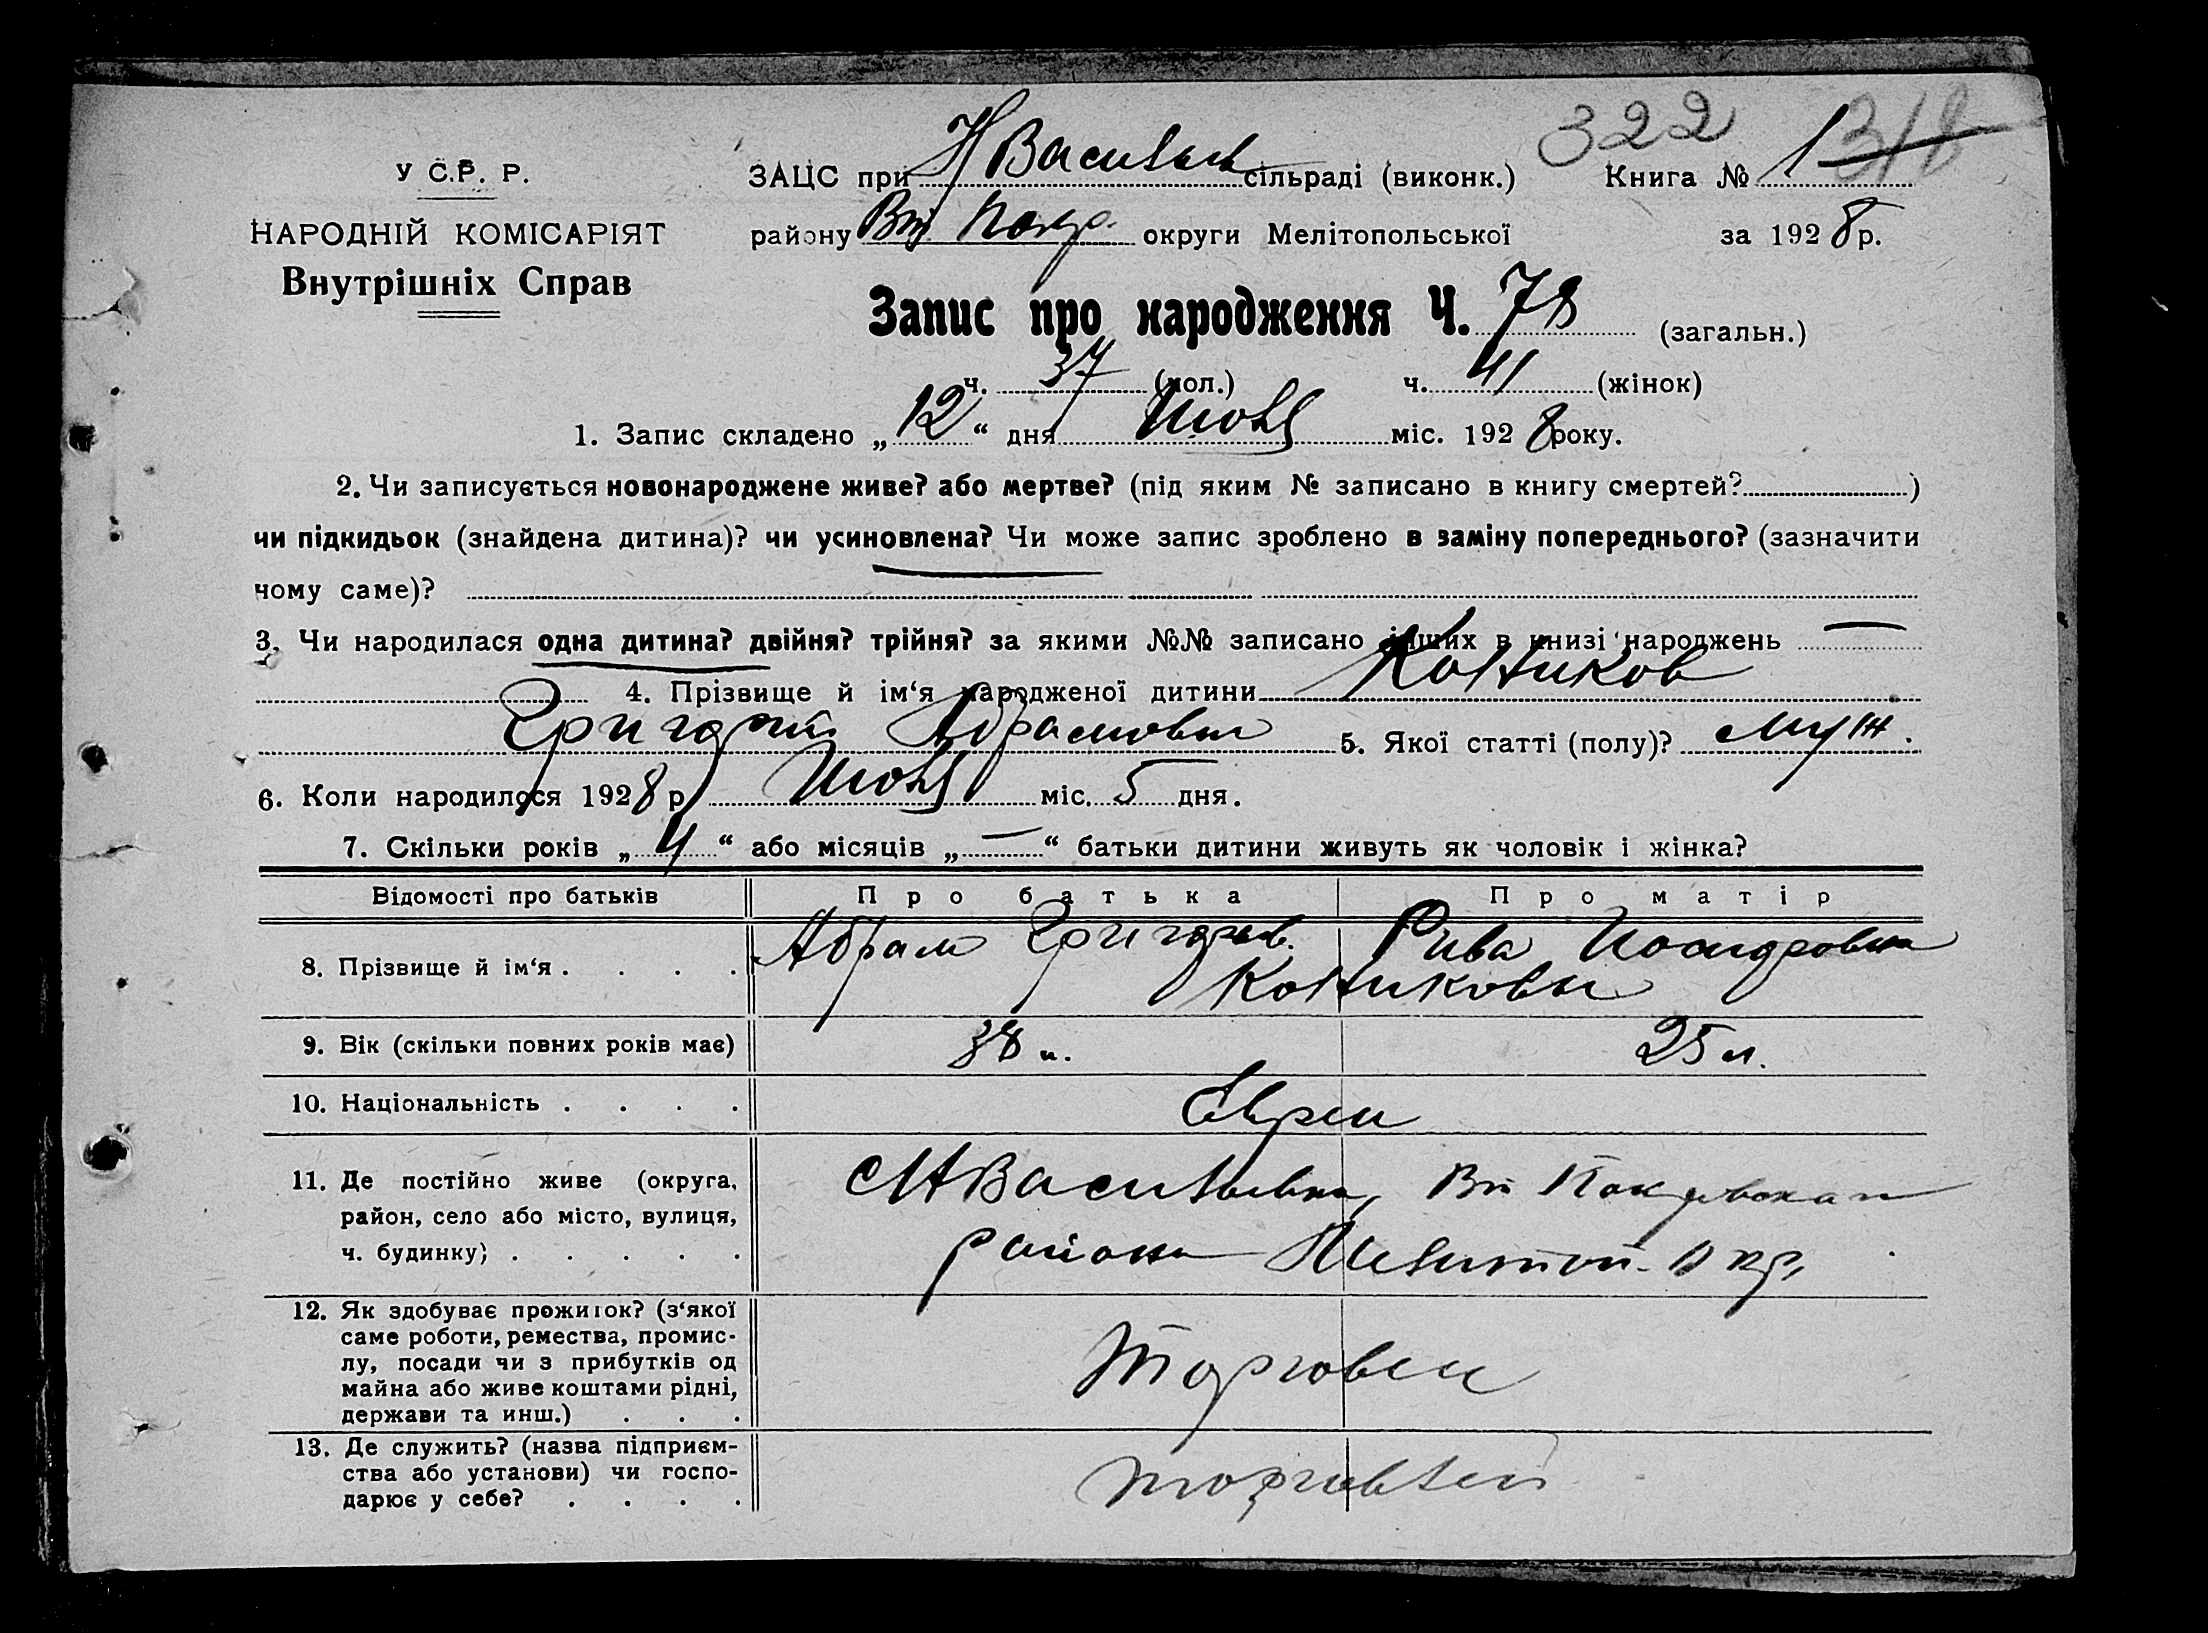 322 318
У С.Р. Р. ЗАЦС при Н Васильев сільраді (виконк.) Книга № 1
НАРОДНІЙ КОМІСАРІЯТ району Вт Покр. округи Мелітопольської за 1928 р.
Внутрішніх Справ
Запис про народження Ч. 78 (загальн.)
ч. 37 (пол.) ч. 41 (жінок)
1. Запис складено „ 12 “ дня Июня міс. 1928 року.
2. Чи записується новонароджене живе? або мертве? (під яким № записано в книгу смертей? )
чи підкидьок (знайдена дитина)? чи усиновлена? Чи може запис зроблено в заміну попереднього? (зазначити
чому саме)?
3. Чи народилася одна дитина? двійня? трійня? за якими №№ записано інших в книзі народжень —
4. Прізвище й ім‘я народженої дитини Коников
Григорий Абрамович 5. Якої статті (полу)? муж.
6. Коли народилося 1928 р. Июня міс. 5 дня.
7. Скільки років „ 4 “ або місяців „ — “ батьки дитини живуть як чоловік і жінка?
Відомості про батьків Про батька Про матір
8. Прізвище й ім‘я . . . . Абрам Григорьев. Рива
Кониковы
9. Вік (скільки повних років має) 38 л. 25 л.
10. Національність . . . . Евреи
11. Де постійно живе (округа, Вт Покровскаго
район, село або місто, вулиця, района Мелитоп. Окр.
ч. будинку) . . . . .
12. Як здобуває прожиток? (з‘якої
саме роботи, ремества, промис-
лу, посади чи з прибутків од
майна або живе коштами рідні,
держави та инш.) . . . Торговец
13. Де служить? (назва підприєм-
ства або установи) чи госпо-
дарює у себе? . . . . торговлей